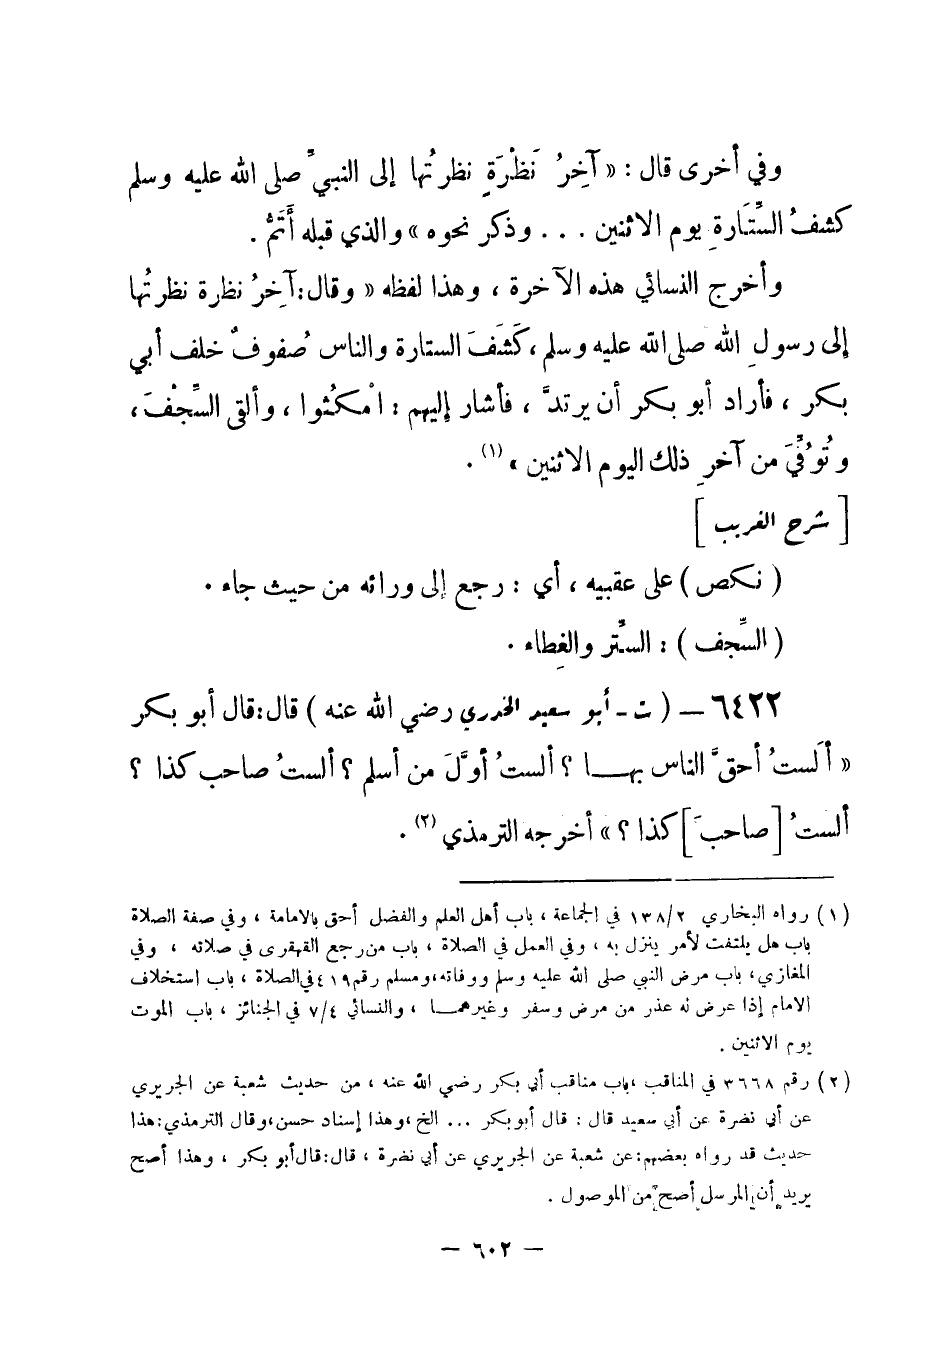 وفي أخرى قال : « آخِرُ نَظْرَةٍ نظرتُها إلى النبيِّ صلى الله عليه وسلم
كشفُ السِّتَارةِ يوم الاثنين . . . وذكر نحوه » والذي قبله أَتَمُّ .
وأخرج النسائي هذه الآخرة ، وهذا لفظه « وقال: آخِرُ نظرة نظرتُها
إلى رسولِ الله صلى الله عليه وسلم ، كَشَفَ الستارة والناس صُفوفٌ خلف أبي
بكر ، فأراد أبو بكر أن يرتدَّ ، فأشار إليهم : امْكُثوا ، وألقى السِّجْفَ ،
وتُوُفِّيَ من آخرِ ذلك اليوم الاثنين » (١) .
[ شرح الغريب ]
( نكص ) على عقبيه ، أي : رجع إلى ورائه من حيث جاء .
( السِّجف ) : السِّتر والغِطاء .
٦٤٢٢ – ( ت - أبو سعيد الخدري رضي الله عنه ) قال: قال أبو بكر
« ألَستُ أحقَّ الناس بهـا ؟ ألستُ أوَّلَ من أسلم ؟ ألستُ صاحب كذا ؟
ألستُ [ صاحبَ ] كذا ؟ » أخرجه الترمذي (٢) .
(١) رواه البخاري ١٣٨/٢ في الجماعة ، باب أهل العلم والفضل أحق بالامامة ، وفي صفة الصلاة
باب هل يلتفت لأمر ينزل به ، وفي العمل في الصلاة ، باب من رجع القهقرى في صلاته ، وفي
المغازي ، باب مرض النبي صلى الله عليه وسلم ووفاته ، ومسلم رقم ٤١٩ في الصلاة ، باب استخلاف
الامام إذا عرض له عذر من مرض وسفر وغيرهمـا ، والنسائي ٧/٤ في الجنائز ، باب الموت
يوم الاثنين .
(٢) رقم ٣٦٦٨ في المناقب ، باب مناقب أبي بكر رضي الله عنه ، من حديث شعبة عن الجريري
عن أبي نضرة عن أبي سعيد قال : قال أبو بكر ... الخ ، وهذا إسناد حسن ، وقال الترمذي : هذا
حديث قد رواه بعضهم : عن شعبة عن الجريري عن أبي نضرة ، قال: قال أبو بكر ، وهذا أصح
يريد أن المرسل أصح من الموصول .
– ٦٠٢ –